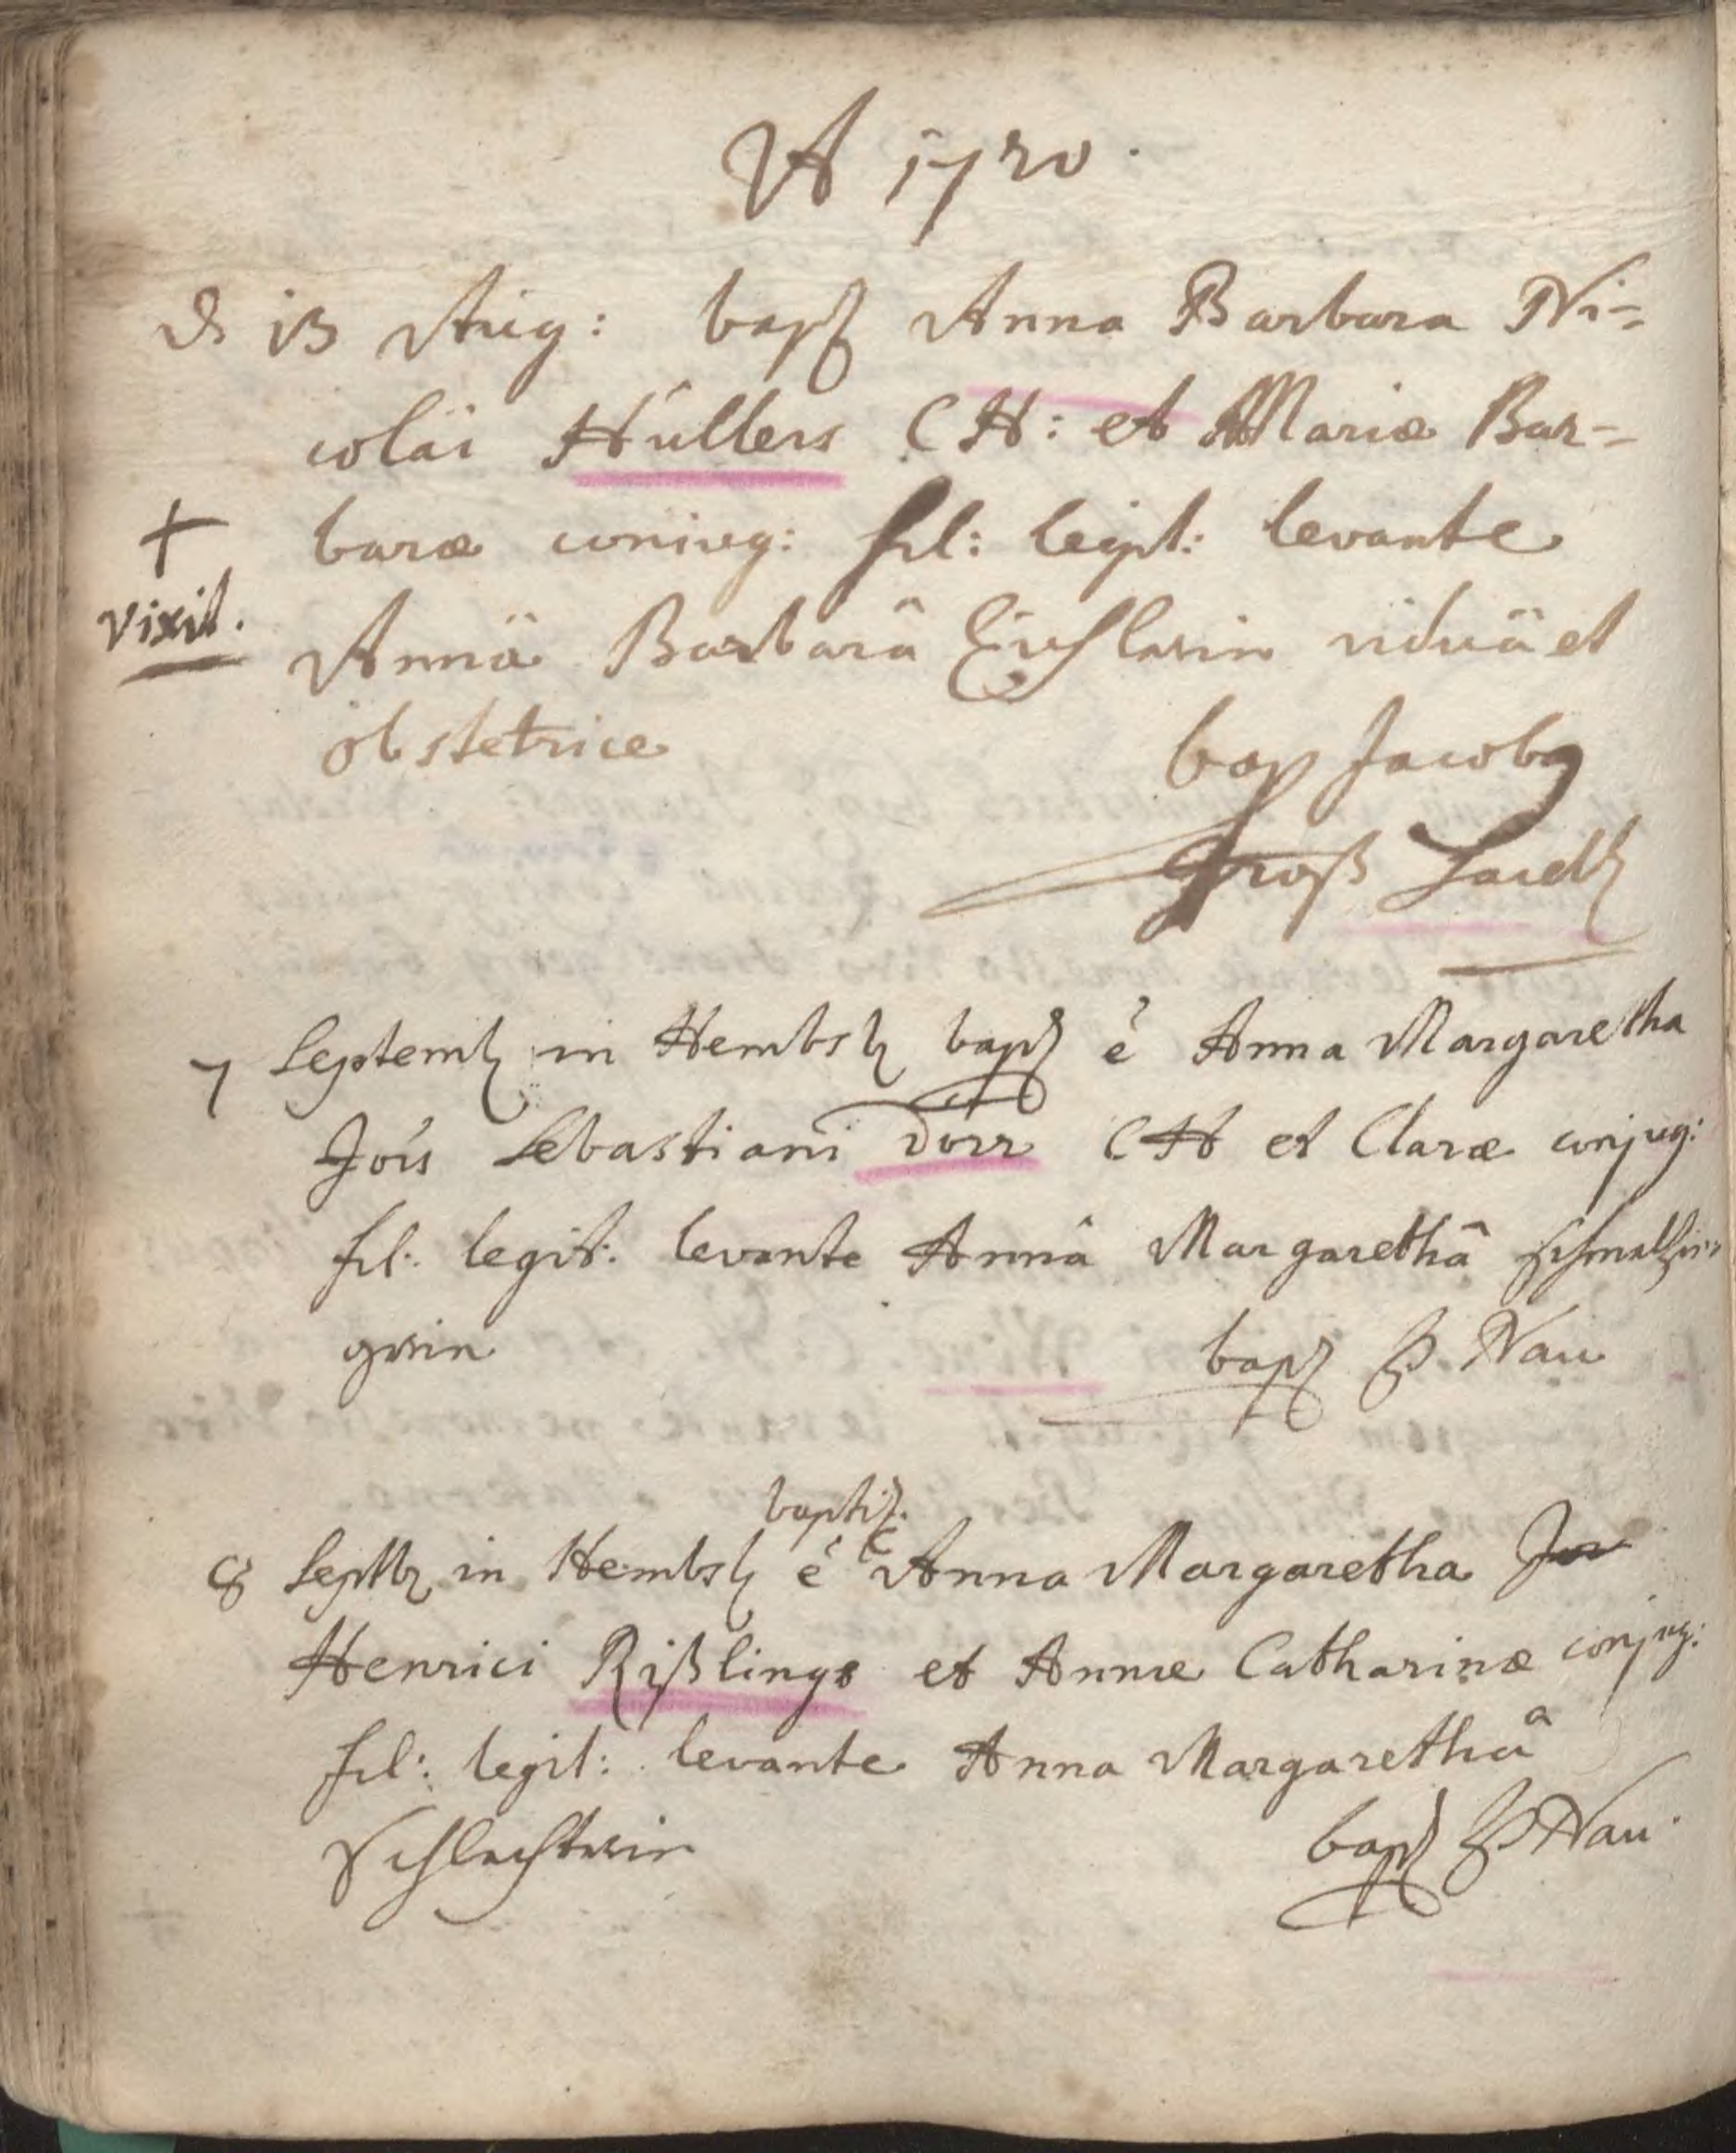 A 1720.
D 13 Aug: bapt Anna Barbara Ni=
colai Hüllers CH: et Mariæ Bar=
baræ coniug: fil: legit: levante
+
vixit.
Annâ Barbarâ viduâ et
obstetrice bap Jacobg
Groß
7 Septemb in Hembsb bapt ê Anna Margaretha
Jois Sebastiani Dörr CH et Claræ conjug:
fil: legit: levante Annâ Margarethâ Schmaltzin=
gerin bapt P Nau
baptiz.
8 Septbr in Hembsb ê Anna Margaretha
Henrici Rißlings et Annæ Catharinæ conjug:
fil: legit: levante Anna Margarethâ
Schlechterin bapt P Nau.